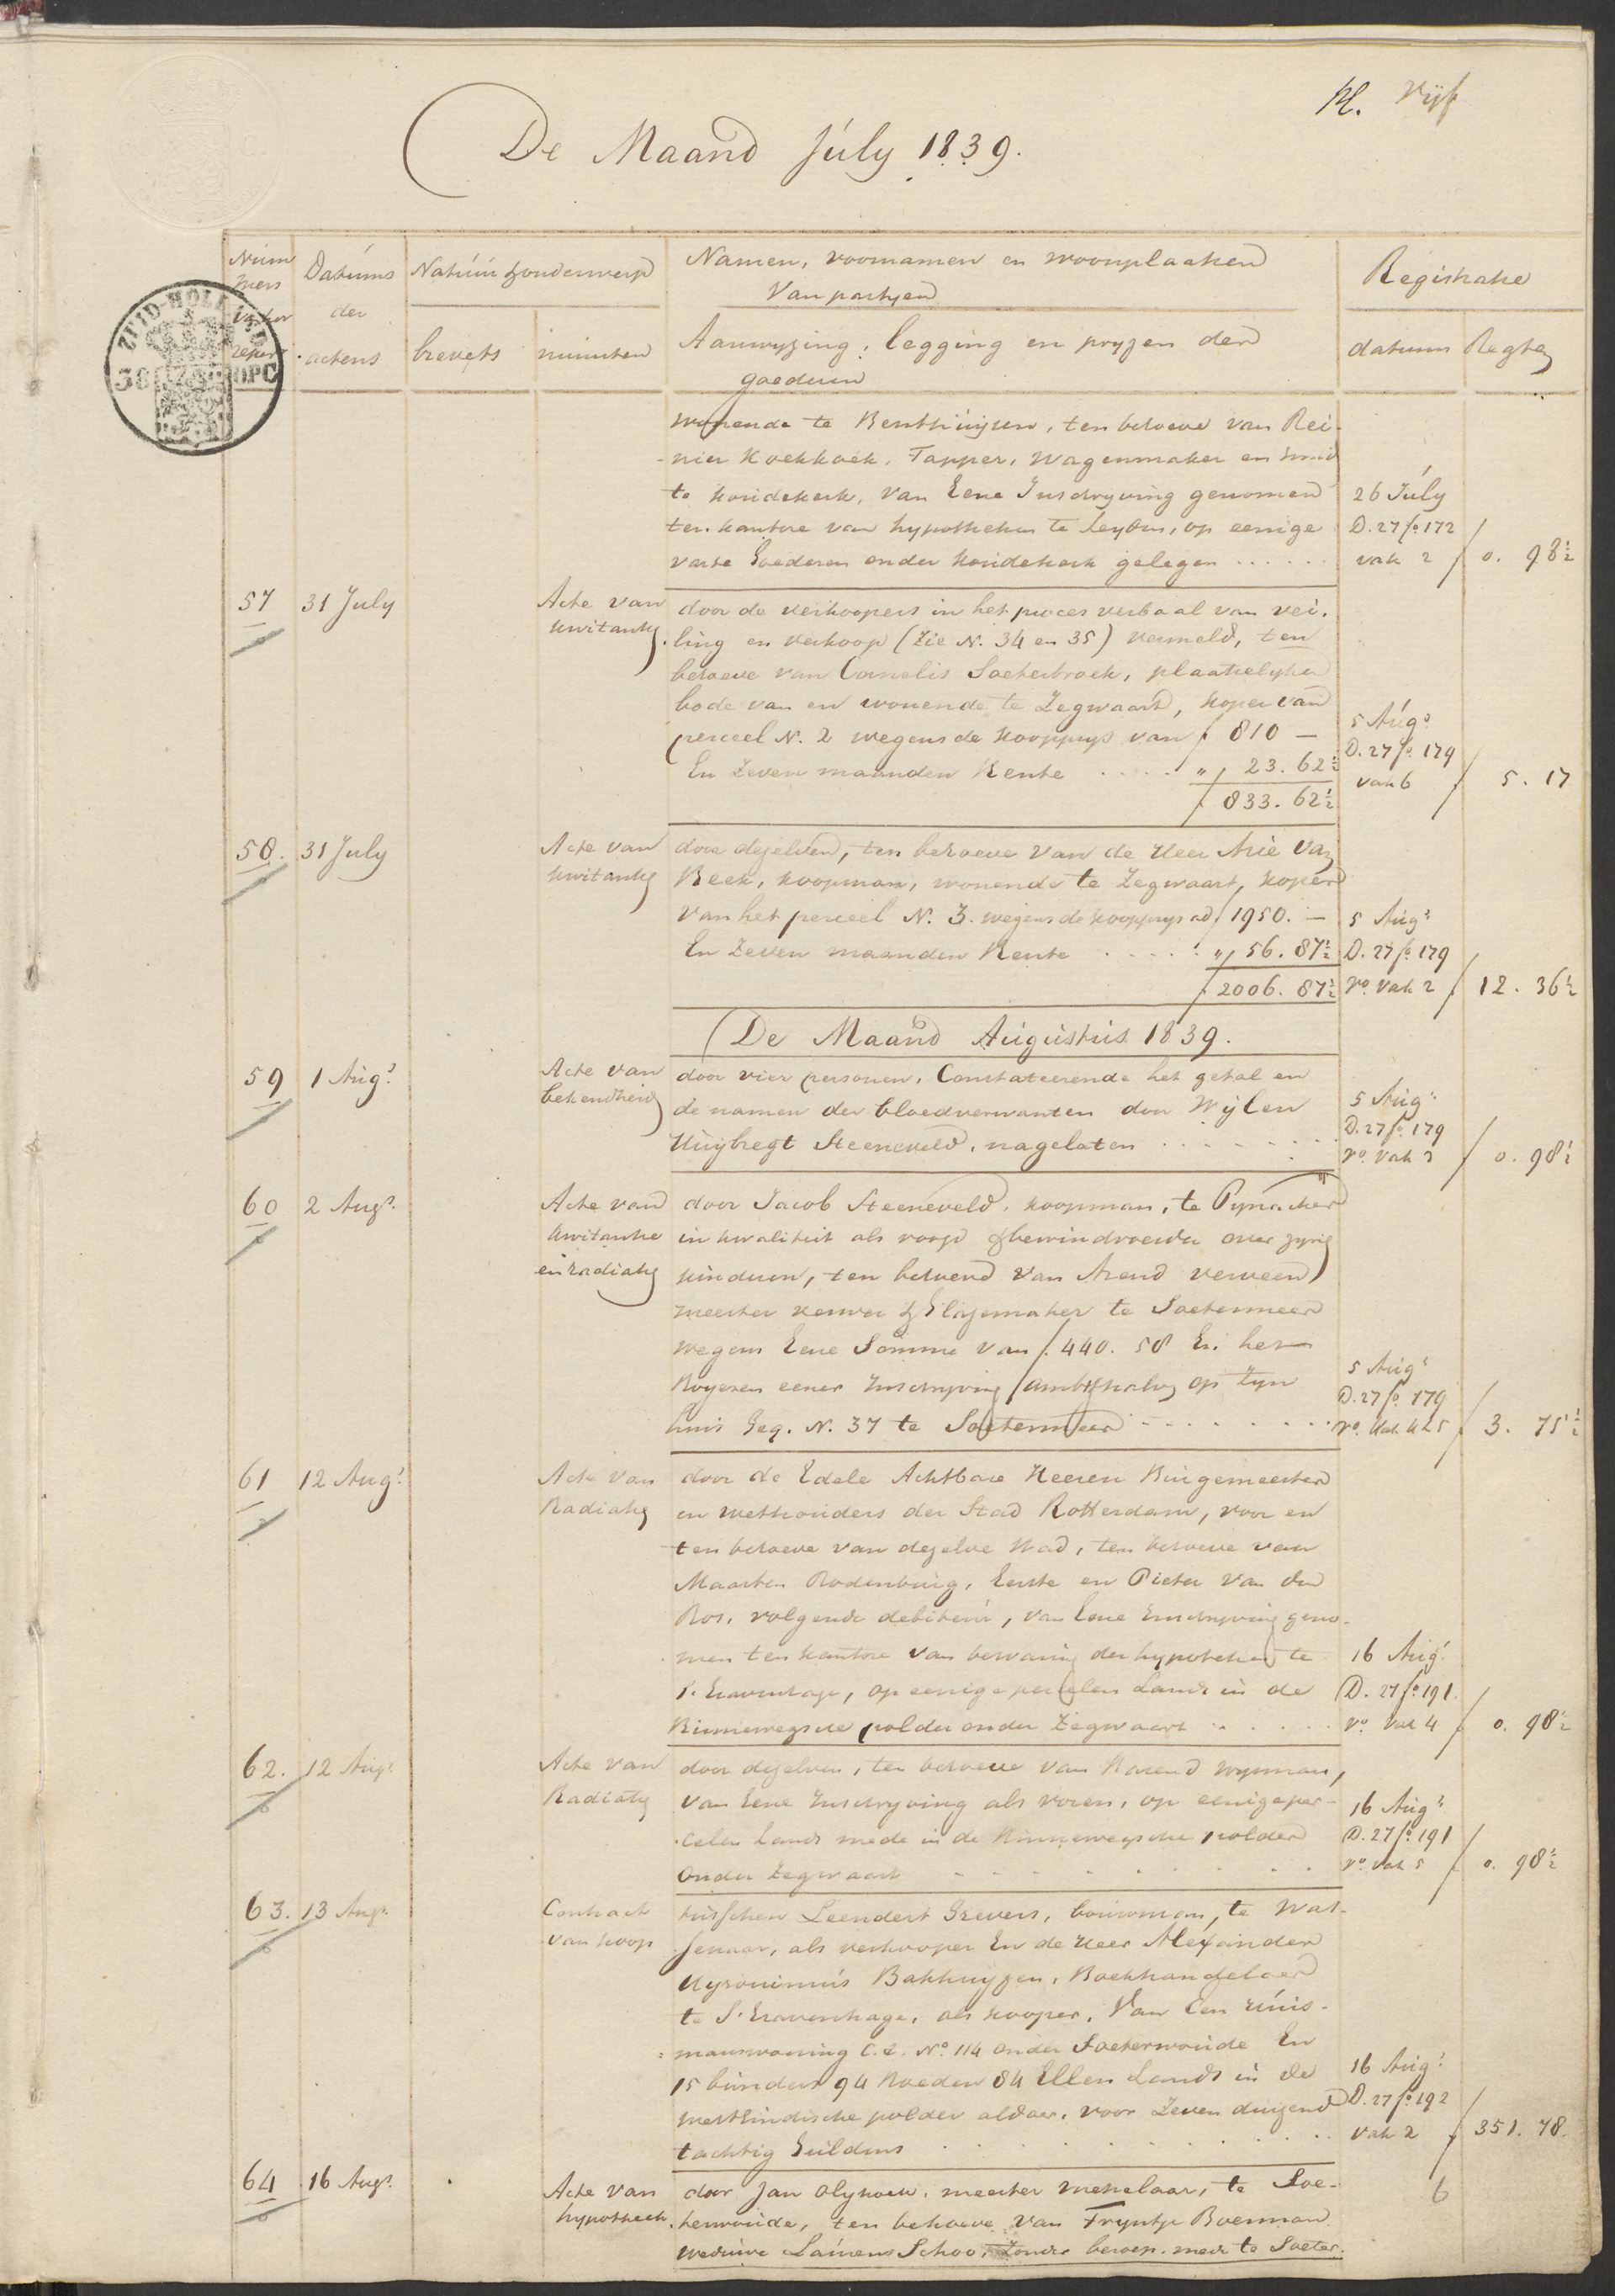 Vijf
De Maand July 1839.
Datums
der
actens
Natuur & onderwerp
brevets
minuten
Namen, voornamen en woonplaatsen
Van partijen
Aanwyzing, legging en pryzen der
goederen
Registratie
datum
Regten
ZUID-HOLLAND
wonende te Benthuijzen, ten behoeve van Rei-
nier Koekkoek, Tapper, Wagenmaker en Smid
te Koudekerk, van Eene Inschryving genomen
ten kantore van hypotheken te Leyden, op eenige
vaste Goederen onder Koudekerk gelegen
26 July
D. 27 fo. 172
vak 2
f 0. 98½
57
31 July
Acte van
kwitantie
door de verkoopers in het proces verbaal van vei-
ling en verkoop (Zie N. 34 en 35) vermeld, ten
behoeve van Cornelis Soeterbroek, plaatselyke
bode van en wonende te Zegwaart, koper van
perceel N. 2 wegens de koopprys van f 810 —
En Zeven maanden Rente " 23. 62½
f 833. 62½
5 Augs
D. 27 fo. 179
vak 6
f 5. 17
58.
31 July
Acte van
kwitantie
door dezelfden, ten behoeve van de Heer Arie Van
Beek, koopman, wonende te Zegwaart, koper
van het perceel N. 3. wegens de koopprys ad f 1950. —
En Zeven maanden Rente " 56. 87½
f 2006. 87½
5 Augs
D. 27 fo. 179
vo. Vak 2
f 12. 36½
De Maand Augustus 1839.
59
1 Augs
Acte van
bekendheid
door vier personen, Constateerende het getal en
de namen der bloedverwanten door Wijlen
Huijbregt Steeneveld, nagelaten
5 Augs
D. 27 fo. 179
vo. Vak 3
f 0. 98½
60
2 Augs
Acte van
kwitantie
en radiatie
door Jacob Steeneveld, koopman, te Pynacker
in kwaliteit als voogd & bewindvoerder over zyne
kinderen, ten behoeve van Arend Verveen
meester verwer & Glazemaker te Soetermeer
wegens Eene Somme van f 440. 58 En het
Royeren eener Inschryving ambtshalve op Zyn
huis Geq. N. 37 te Soetermeer
5 Augs
D. 27 fo. 179
vo. Vak 4 & 5
f 3. 75½
61
12 Augs
Acte van
Radiatie
door de Edele Achtbare Heeren Burgemeester
en wethouders der Stad Rotterdam, voor en
ten behoeve van dezelve Stad, ten behoeve van
Maarten Rodenburg, Eerste en Pieter Van den
Bos, volgende debiteur, van Eene Inschryving geno-
men ten kantore van bewaring der hypotheken te
S. Gravenhage, op eenige perceelen Lands in de
Binnewegsche polder onder Zegwaart
16 Augs
D. 27 fo. 191
vo. Vak 4
f 0. 98½
62.
12 Augs
Acte van
Radiatie
door dezelven, ten behoeve van Barend Wynman,
van Eene Inschryving als voren, op eenige per-
celen Lands mede in de Binnewegsche polder
onder Zegwaart
16 Augs
D. 27 fo. 191
vo. Vak 5
f 0. 98½
63.
13 Augs
Contract
van koop
tusschen Leendert Grevers, bouwman, te Was-
senaar, als verkooper En de Heer Alexander
Hyronimus Bakhuyzen, Boekhandelaar
te S. Gravenhage, als kooper, Van Een Huis-
manswoning C. C. No. 114 onder Soeterwoude En
15 bunders 94 Roeden 84 Ellen Lands in de
westeindsche polder aldaar, voor Zeven duizend
tachtig Guldens
16 Augs
D. 27 fo. 192
vak 2
f 351. 78
64
16 Augs
Acte van
hypotheek
door Jan Olyhoek, meester metselaar, te Soe-
terwoude, ten behoeve van Tryntje Boerman
weduwe Laurens Schoo, Zonder beroep, mede te Soeter-
6